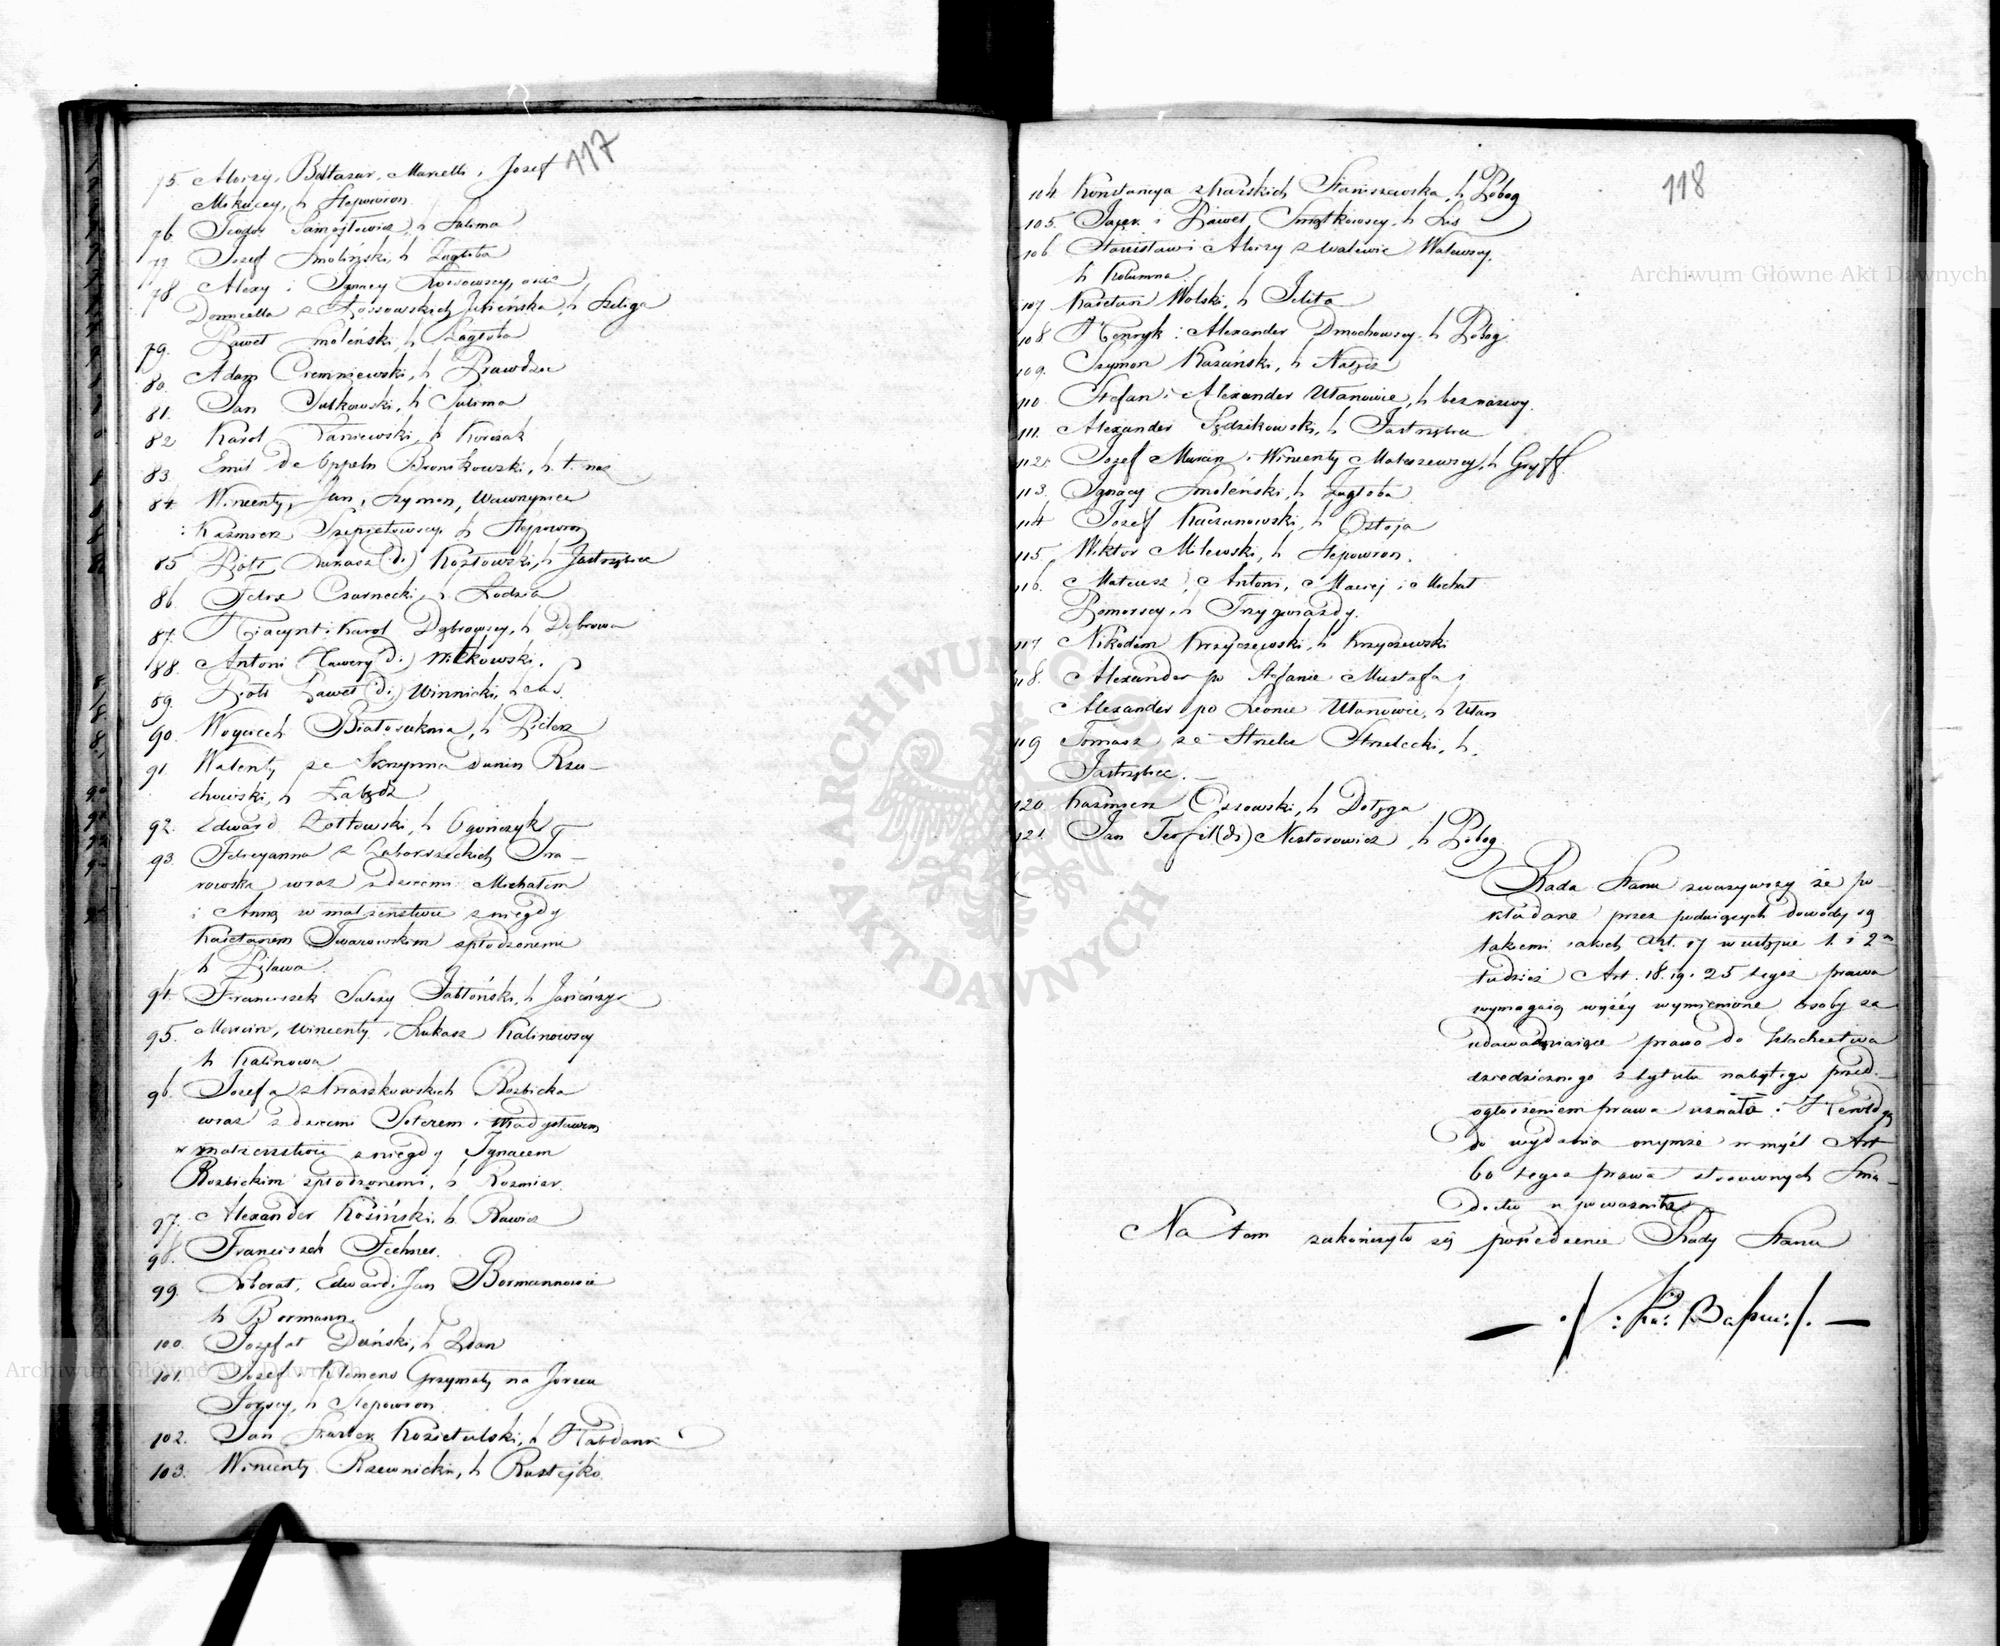 117
75. Aloizy, Baltazar, Marcelli i Jozef
Mikuccy, h Slepowron
76. Teodor Samojłowicz, h Sulima
77. Jozef Smoliński, h Zagłoba
78. Alexy i Ignacy Kossowscy, oraz
Domicella z Kossowskich Jasieńska, h Szeliga
79. Paweł Smoleński h Zagłoba
80. Adam Cremniewski, h Prawdzic
81. Jan Sulkowski, h Sulima
82 Karol Daniewski, h Korczak
83. Emil de Oppeln Bronikowski, h. t. naz
84. Wincenty, Jan, Szymon, Wawrzyniec
i Kazmierz Szepietowscy, h Slepowron
85 Piotr Łukasz (2i.) Kozłowski, h Jastrzębiec
86. Felix Czarnecki, h. Łodzia
87. Hiacynt i Karol Dąbrowscy, h Dąbrowa
88. Antoni Xawery (2i.) Wilkowski.
89. Piotr Paweł (2i.) Winnicki, h Lis.
90. Woyciech Białosuknia, h Pilerz
91. Walenty ze Skrzynna Dunin Rzu-
chowski, h Łabędź
92. Edward Żółtowski, h Ogończyk
93. Felicyanna z Zaborszeckich Twa-
rowska wraz z dziećmi Michałem
i Anną w małżeństwie z niegdy
Kaietanem Twarowskim spłodzonemi
h Pilawa
94. Franciszek Salezy Jabłoński, h Jasieńczyk
95. Marcin, Wincenty i Łukasz Kalinowscy
h Kalinowa
96. Jozefa z Kraszkowskich Rozbicka
wraz z dziećmi Soterem i Władysławem
w małżeństwie z niegdy Ignacem
Rozbickim spłodzonemi, h Rozmiar.
97. Alexander Kosiński, h Rawicz
98. Franciszek Fechner.
99. Liborat, Edward i Jan Bormannowie
h Bormann.
100. Jozefat Duński, h Zdan
101. Jozef Klemens Grzymały na Jorzcu
Jorzscy, h Slepowron
102. Jan Kozietulski, h Habdank
103. Wincenty Rzewnicki, h Rustejko
118
104. Konstancya z Karskich Staniszewska, h Pobog
105. Jacek i Paweł Smętkowscy, h Lis
106 Stanisław i Aloizy z Walewic Walewscy,
h Kolumna
107 Kaietan Wolski, h Jelita
108 Henryk i Alexander Dmochowscy, h Pobog
109. Szymon Kazański, h Nałęcz
110. Stefan i Alexander Ułanowie, h bez nazwy.
111. Alexander Sędzikowski, h Jastrzębiec
112. Jozef Marcin i Wincenty Mataszewscy, h Gryff
113. Ignacy Smoleński, h Zagłoba
114 Jozef Kaczanowski, h Ostoja
115. Wiktor Milewski, h Slepowron.
116. Mateusz, Antoni, Maciej i Michał
Pomorscy, h Trzy gwiazdy.
117 Nikodem Krzyczewski, h Krzyczewski
118. Alexander po Stefanie Mustafa i
Alexander po Leonie Ułanowie, h Ułan
119 Tomasz ze Strzelec Strzelecki, h.
Jastrzębiec.
120. Kazmierz Ossowski, h Dołęga
121. Jan Teofil (2i) Nestorowicz, h Pobog.
Rada Stanu zważywszy że po-
kładane przez podaiących dowody są
takiemi iakich Art. 17 w ustępie 1. i 2m
tudzież Art. 18. 19. i 25 tegoż prawa
wymagaią wyżey wymienione osoby za
udowadniaiące prawo do Szlachectwa
dziedzicznego z tytułu nabytego przed
ogłoszeniem prawa uznała i Heroldyą
do wydania onymże w myśl Art
60 tegoż prawa stosownych Świa-
dectw upoważniła.
Na tem zakończyło się posiedzenie Rady Stanu
Archiwum Główne Akt Dawnych
Archiwum Główne Akt Dawnych
ARCHIWUM GŁÓWNE AKT DAWNYCH